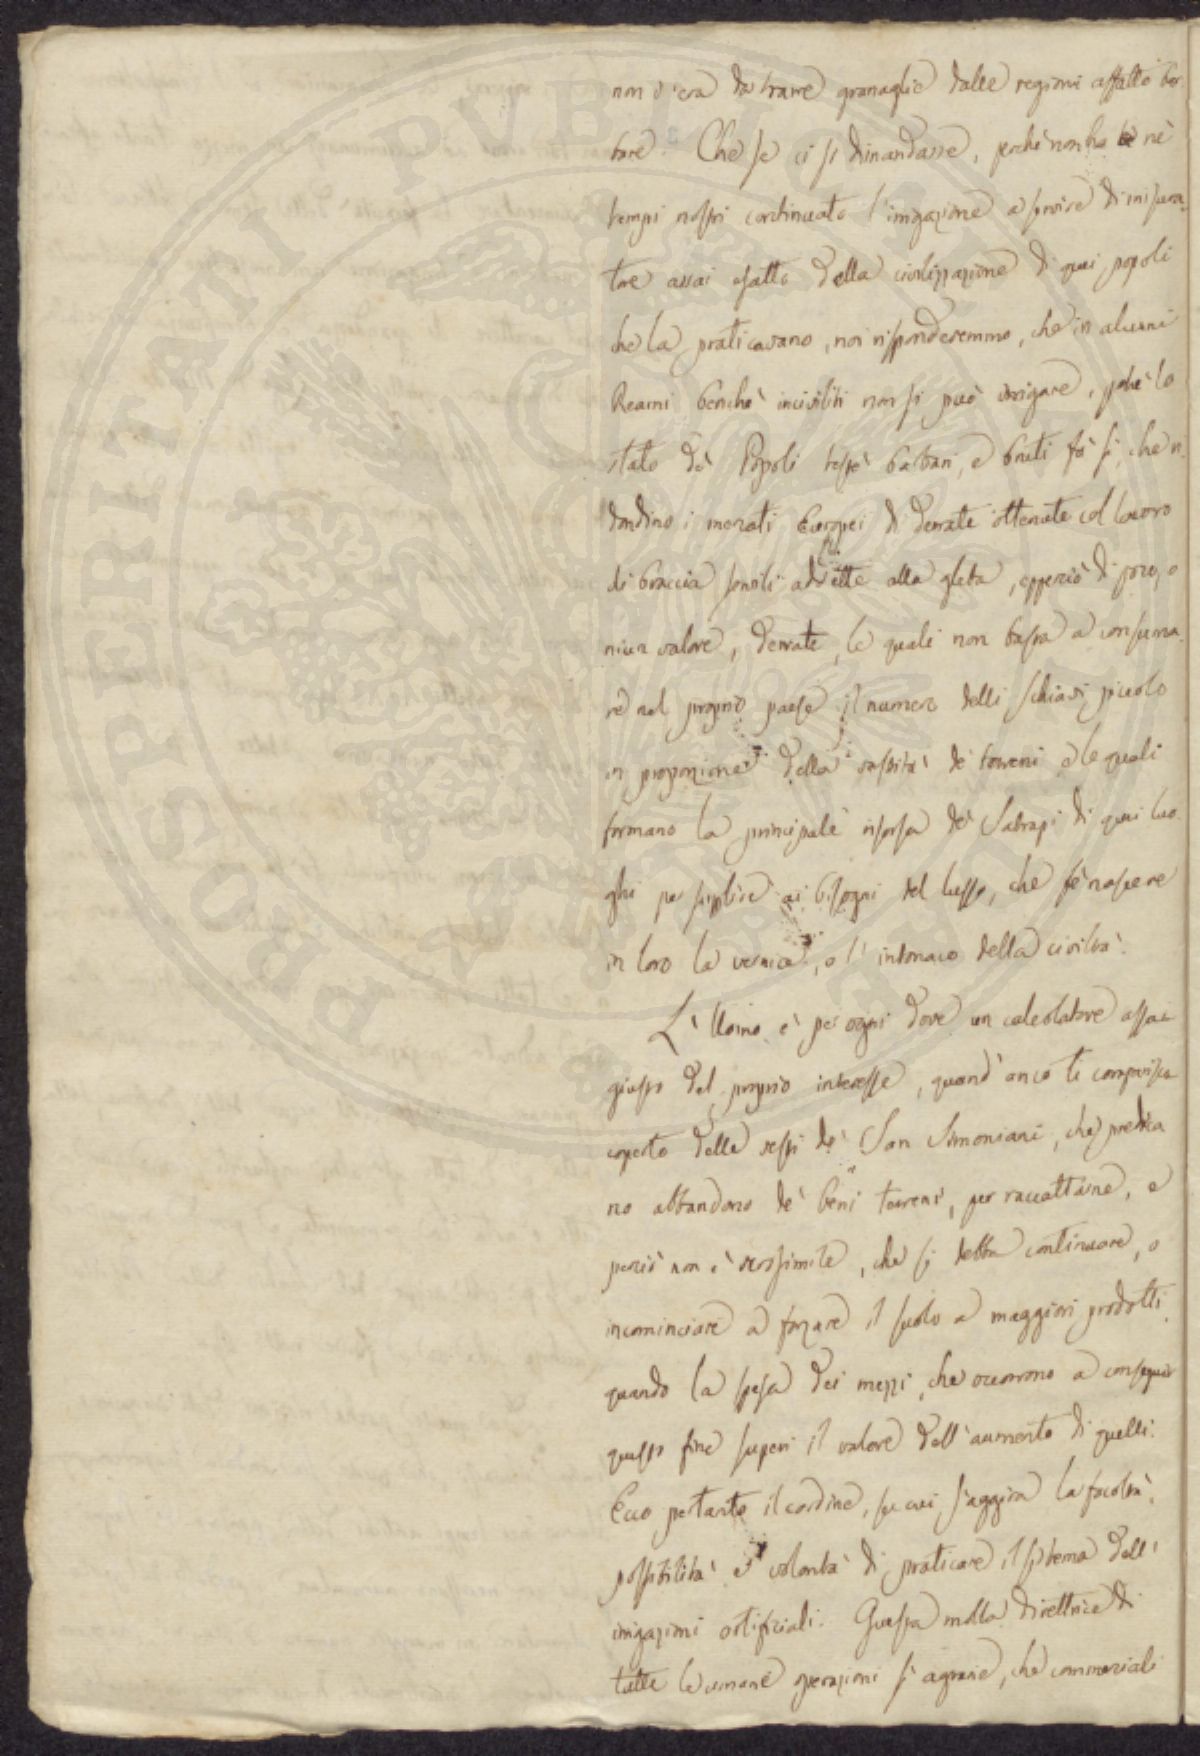 non v'era da trarre granaglie dalle regioni affatto bar
bare. Che se ci si dimandasse, perchè non ha ne
tempi nostri continuato l'irrigazione a servire di misura
tore assai esatto della civilizzazione di quei popoli
che la praticavano, noi risponderemmo, che in alcuni
Reami benchè inciviliti non si può irrigare, perchè lo
stato de' Popoli tuttè barbari, e bruti fà sì, che ri
dondino i mercati Europei di derrate ottenute col lavoro
di braccia servili addette alla gleba, epperciò di poco, o
niun valore, derrate, le quali non basta a consuma
re nel proprio paese il numero delli schiavi piccolo
in proporzione della vastità de' terreni e le quali
formano la principale risorsa de' Satrapi di quei luo
ghi per supplire ai bisogni del lusso, che fè nascere
in loro la vernice, o l'intonaco della civiltà.
L'Uomo è per ogni dove un calcolatore assai
giusto del proprio interesse, quand'anco ti comparisca
coperto delle vesti de' San Simoniani, che predica
no abbandono de' beni terreni, per raccattarne, e
perciò non è verosimile, che si debba continuare, o
incominciare a forzare il suolo a maggiori prodotti
quando la spesa dei mezzi, che occorrono a conseguir
questo fine superi il valore dell'aumento di quelli.
Ecco pertanto il cardine, su cui s'aggira la facoltà,
possibilità e volontà di praticare il sistema dell'
irrigazioni artificiali. Questa molla direttrice di
tutte le umane operazioni sì agrarie, che commerciali
PROSPERITATI PVBLICAE